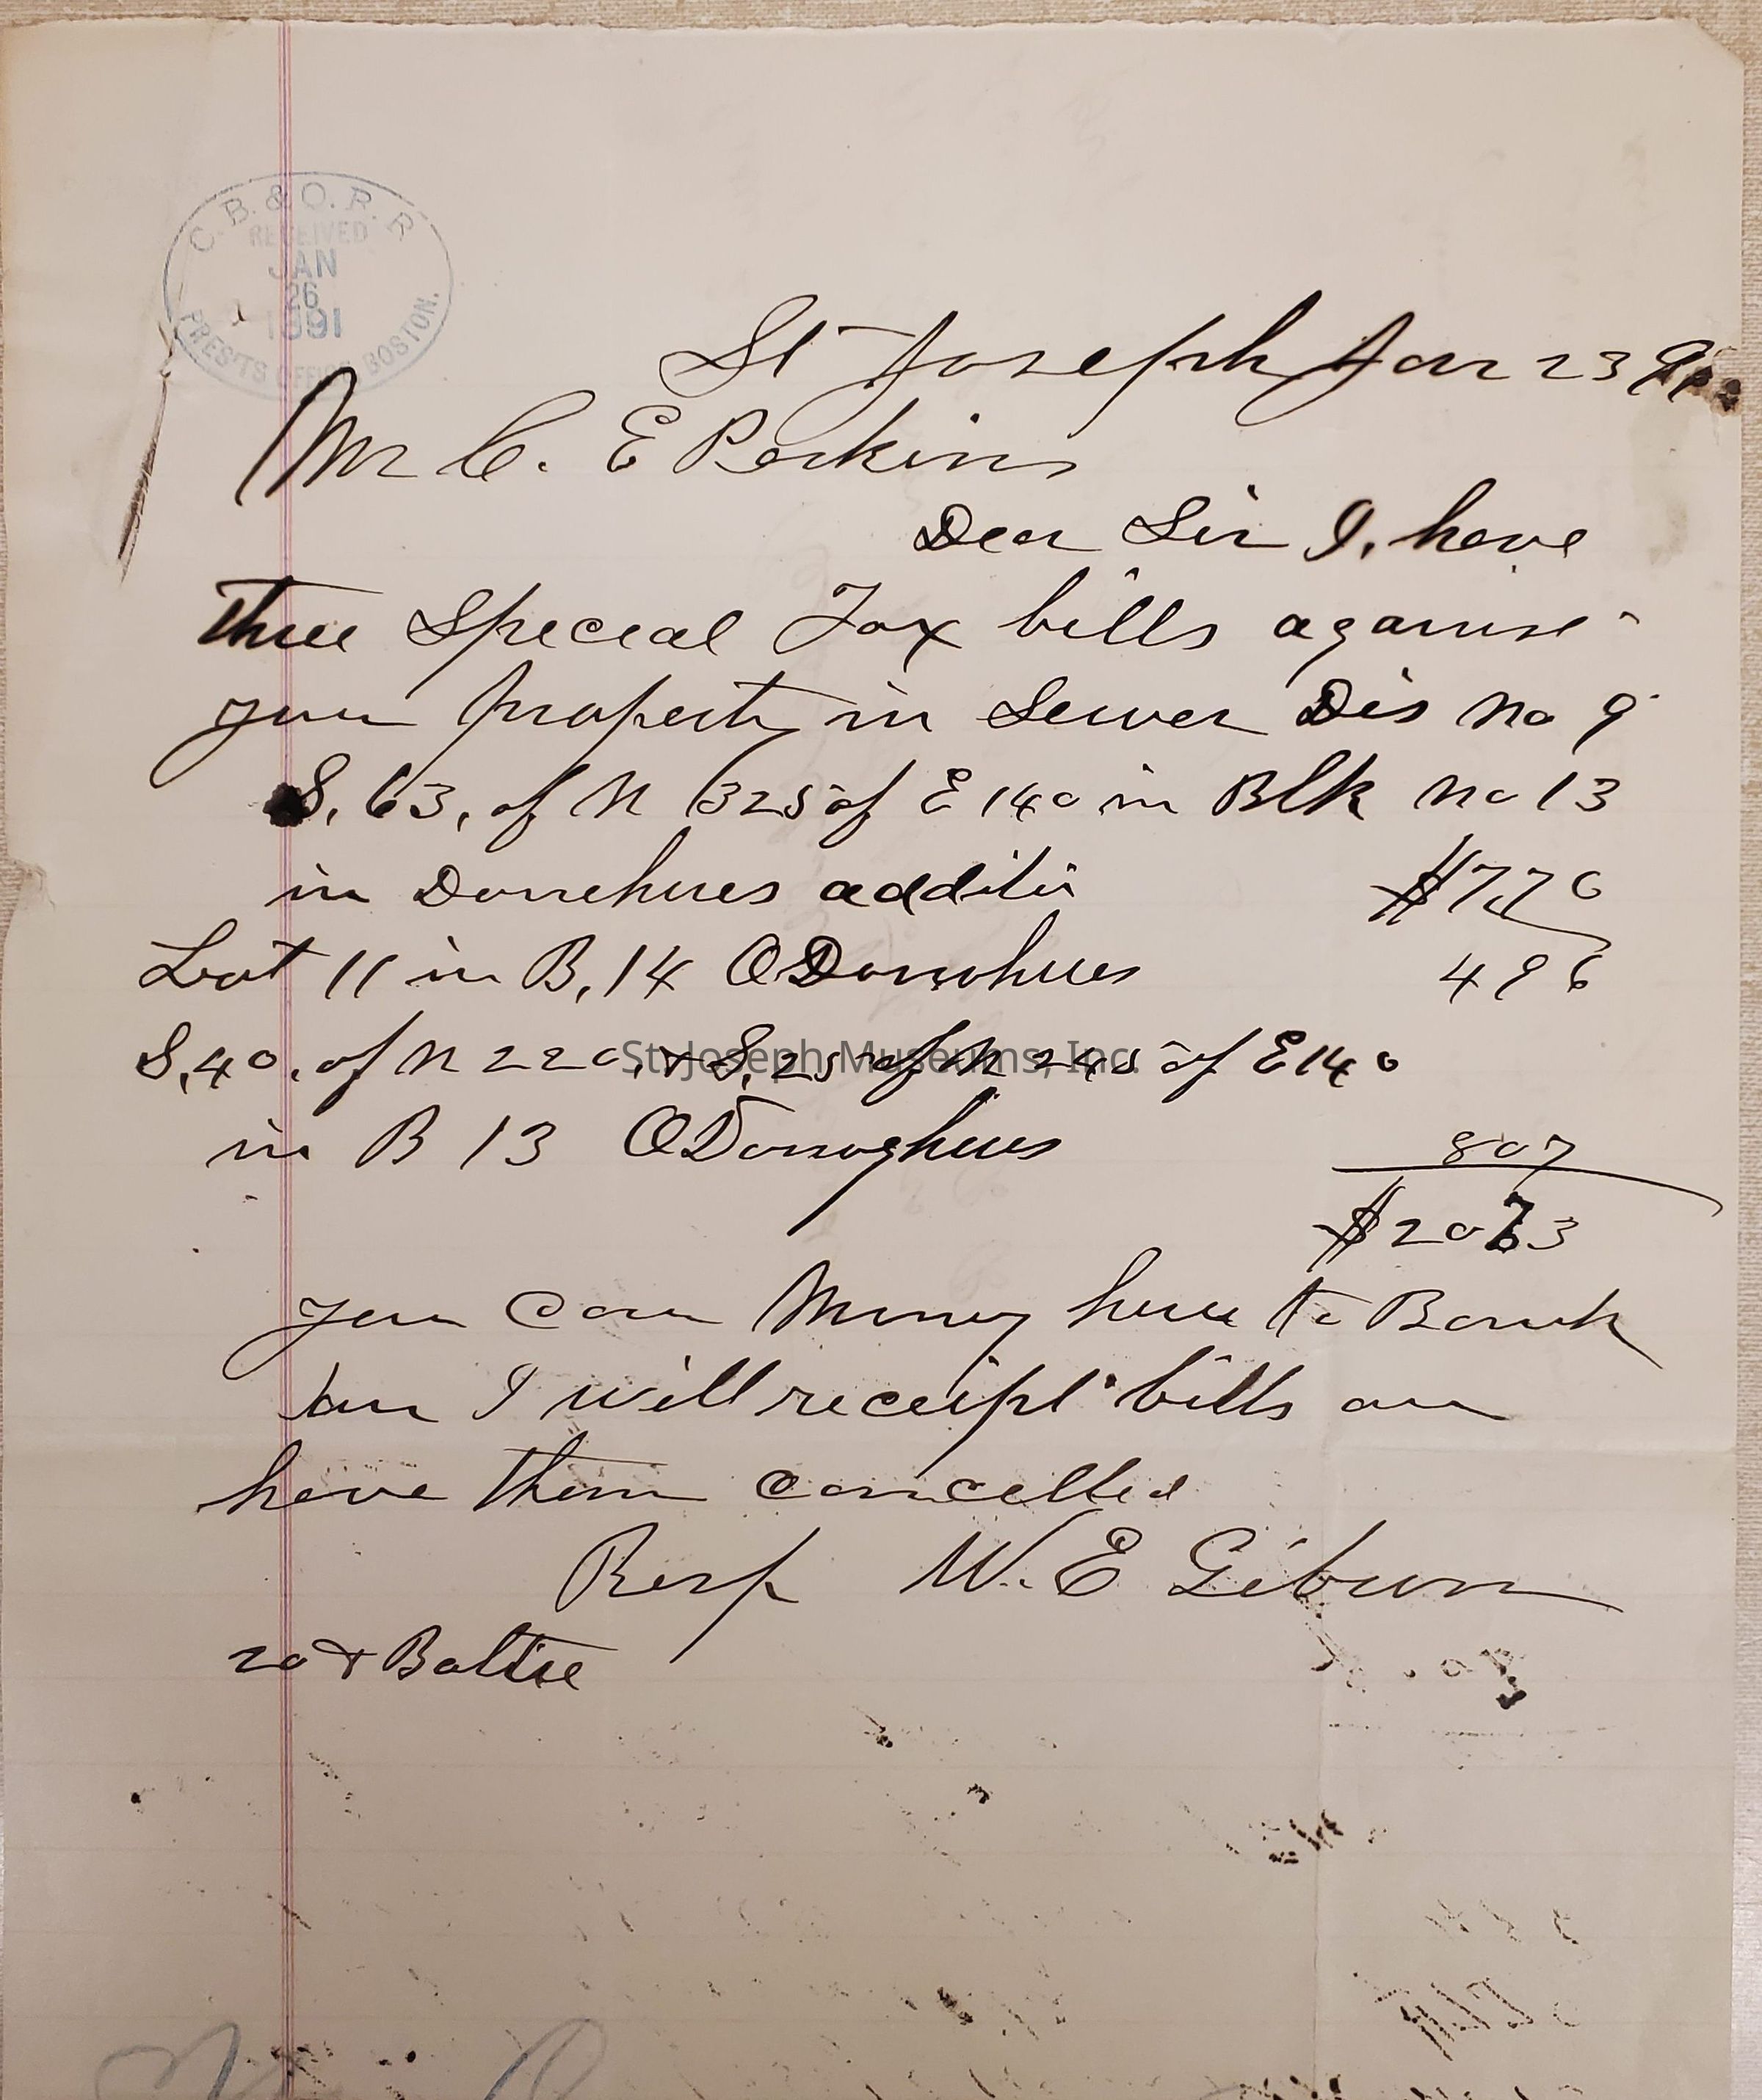 C. B. & Q. R. R.
RECEIVED
JAN
26
1891
PRES'TS OFFICE BOSTON.
St Joseph Jan 23 91
Mr C. E Perkins
Dear Sir I, have
three Special Tax bills against
your property in Sewer Dis no 9
S, 63, of N 325 of E 140 in Blk no 13
in Donehues additi
$770
Lot 11 in B, 14 O Donohues
496
S, 40, of N 220, & S, 25 of N 245 of E 140
in B 13 O Donoghues
807
$2073
you can Money here to Bank
I will receipt bills an
have them cancelled
Resp W. E Gibson
20 & Baltise
St. Joseph Museums, Inc.